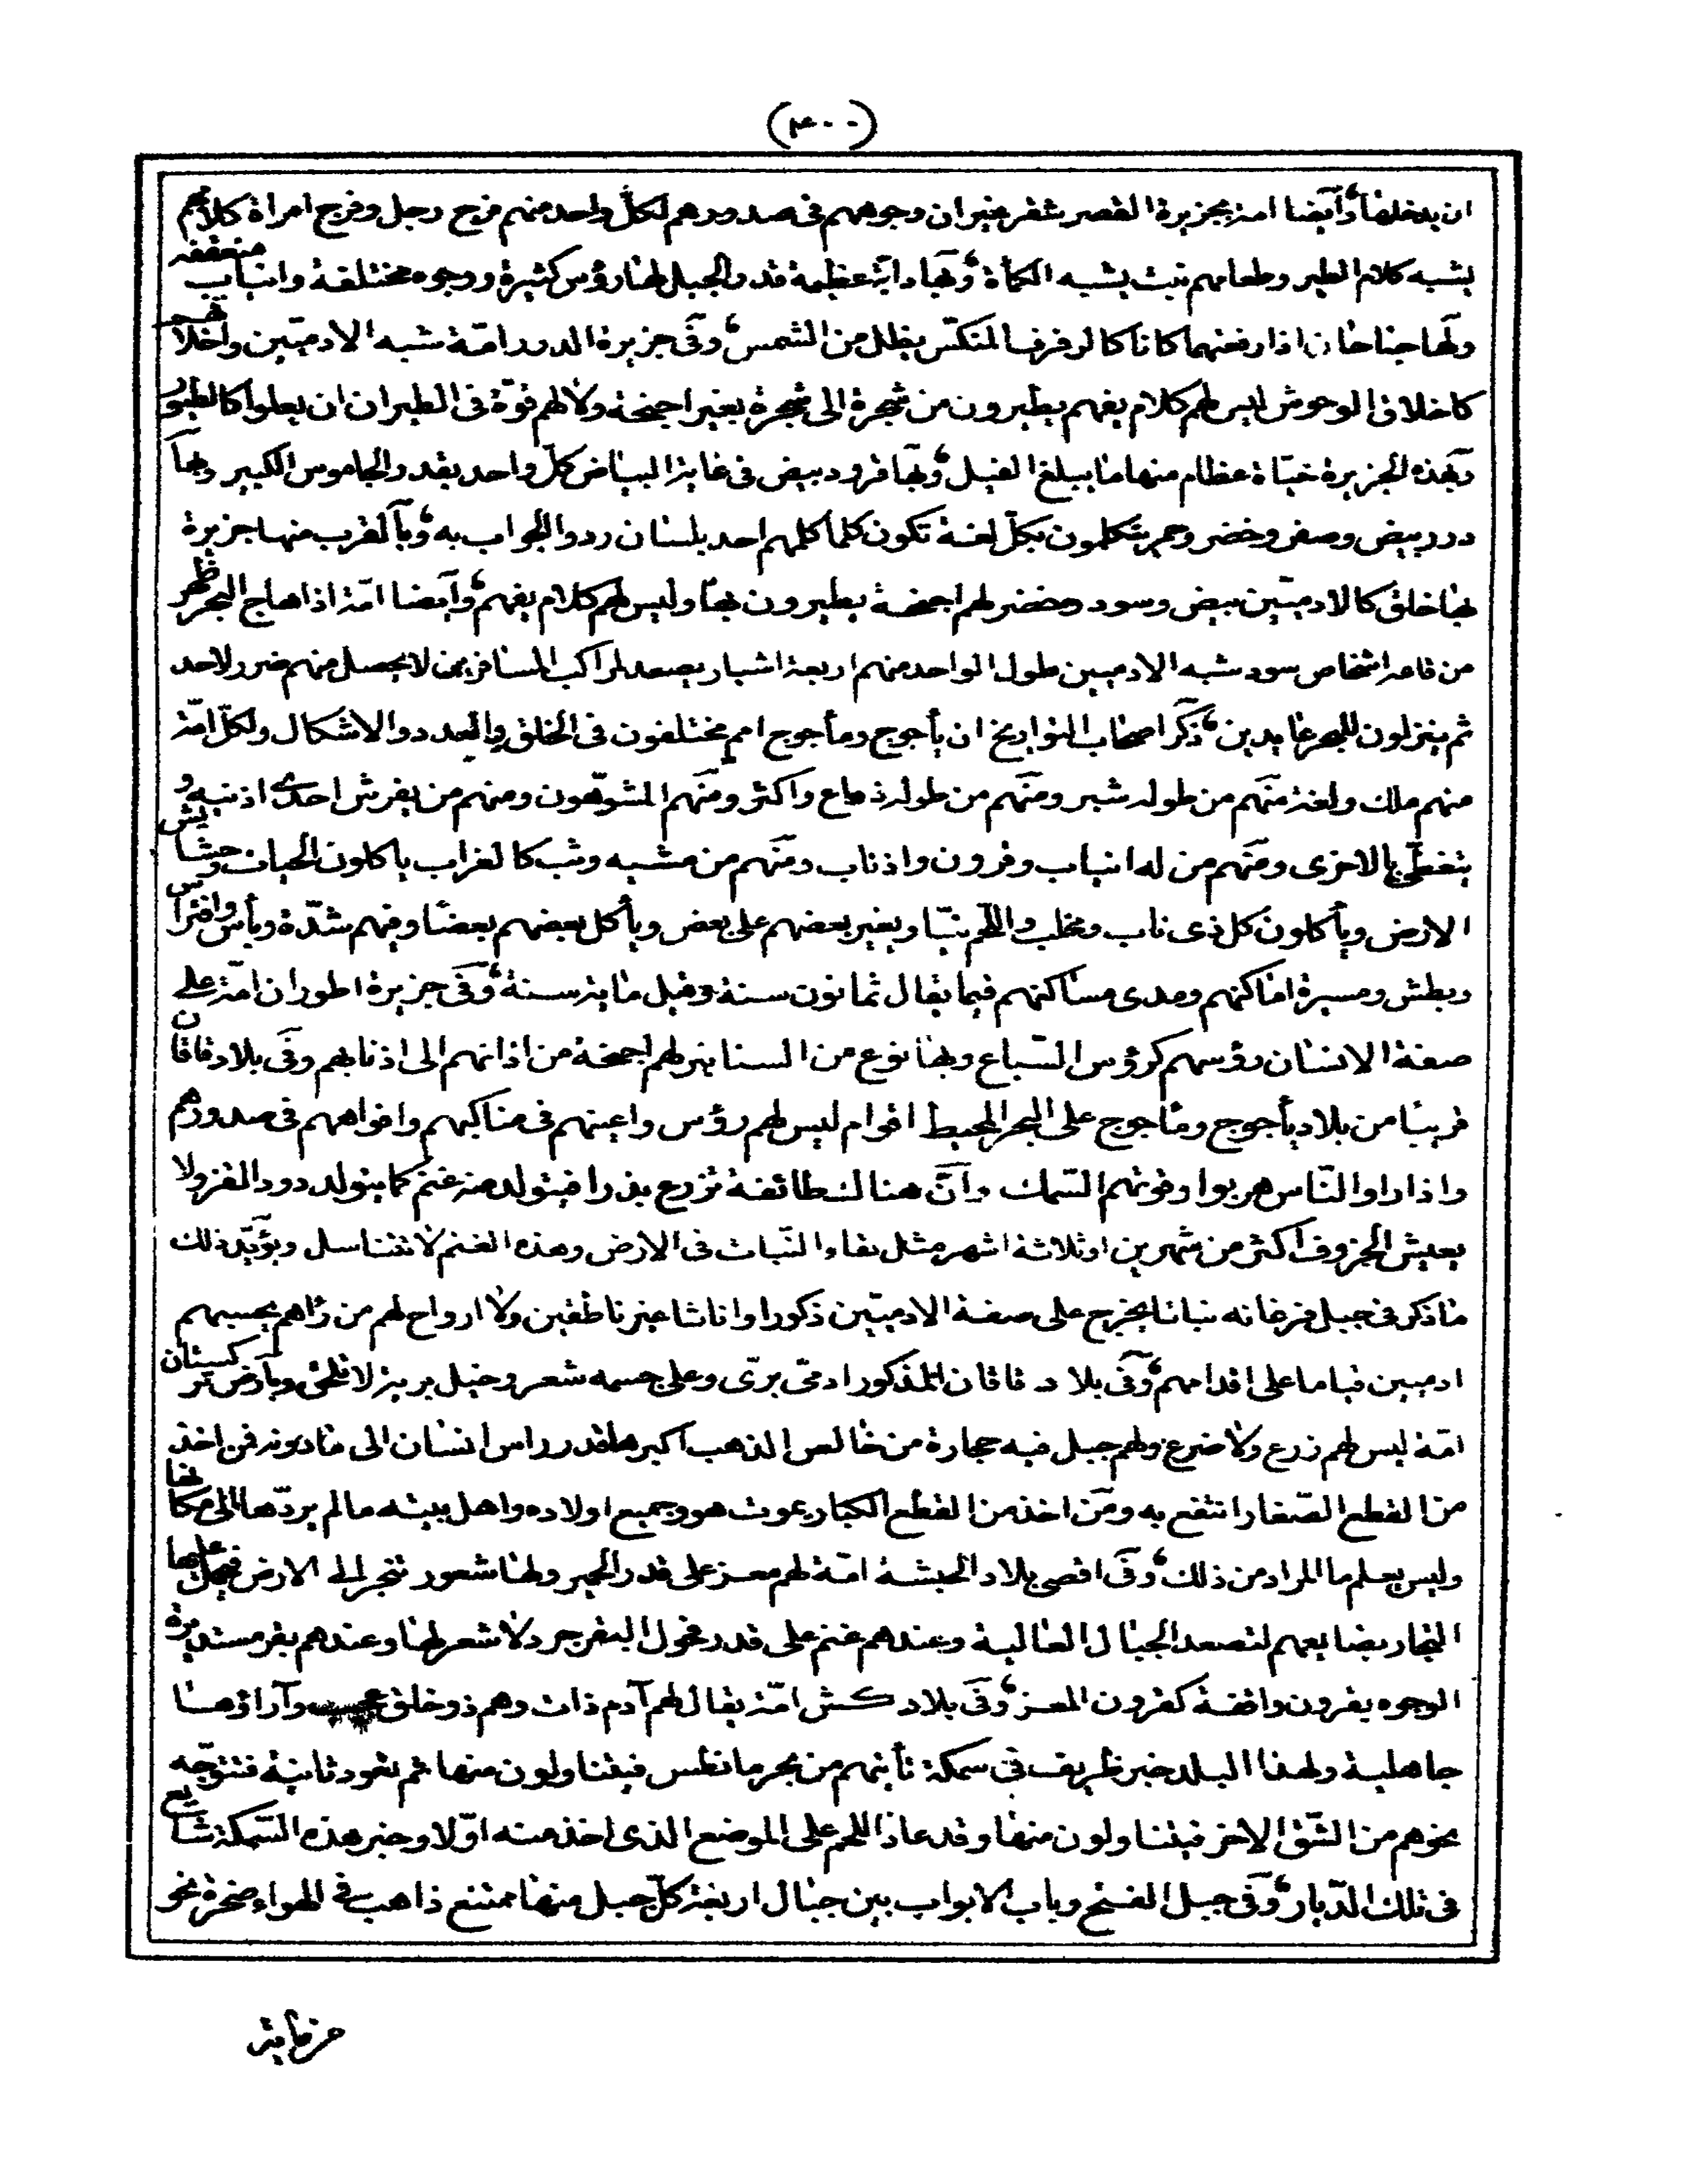 (٣٠٠)
ان يدخلها وأيضا امة بجزيرة القصر شقر غيران وجوههم في صدورهم لكل واحد منهم فرج رجل وفرج امراة كلامهم
يشبه كلام الطير وطعامهم نبت يشبه الكمأة وبها دابة عظيمة قدر الجبل لها رؤس كثيرة ووجوه مختلفة وانياب منعقفه
ولها جناحان اذا رفعتهما كانا كالرفرف المنكس يظلل من الشمس وفى جزيرة الدرر امّة شبه الادميّين واخلاقهم
كاخلاق الوحوش ليس لهم كلام يفهم يطيرون من شجرة الى شجرة بغير اجنحة ولا لهم قوّة فى الطيران ان يعلوا كالطيور
وبهذه الجزيرة حيّاة عظام منها ما يبلغ الفيل وبها قرود بيض فى غاية البياض كلّ واحد بقدر الجاموس الكبير وبها
درر بيض وصفر وخضر وحمر يتكلمون بكلّ لغة تكون كلما كلمهم احد بلسان ردوا الجواب به وبالقرب منها جزيرة
بها خلق كالادميّين بيض وسود وخضر لهم اجنحة يطيرون بها وليس لهم كلام يفهم وأيضا امّة اذا هاج البحر ظهر
من قاعه اشخاص سود شبه الادميين طول الواحد منهم اربعة اشبار يصعد لمراكب المسافرين لا يحصل منهم ضرر لاحد
ثم ينزلون للبحر عايدين ذكر اصحاب التواريخ ان يأجوج ومأجوج امم مختلفون فى الخلق والعدد والاشكال ولكلّ امّة
منهم ملك ولغة منهم من طوله شبر ومنهم من طوله ذراع واكثر ومنهم المشوّهون ومنهم من يفرش احدى اذنيه و
يتغطى بالاخرى ومنهم من له انياب وقرون واذناب ومنهم من مشيه وثب كالغراب ياكلون الحيات وحشايش
الارض ويأكلون كل ذى ناب ومخلب واللحم نيّا ويغير بعضهم على بعض ويأكل بعضهم بعضا وفيهم شدّة وبأس وافتراس
وبطش ومسيرة اماكنهم ومدى مساكنهم فيما يقال ثمانون سنة وقيل ماية سنة وفى جزيرة اطوران امّة على
صفة الانسان رؤسهم كرؤس السّباع وبها نوع من السنانير لهم اجنحة من اذانهم الى اذنابهم وفى بلاد قاقان
قريبا من بلاد يأجوج ومأجوج على البحر المحيط اقوام ليس لهم رؤس واعينهم فى مناكبهم وافواههم فى صدورهم
واذا راوا النّاس هربوا وقوتهم السّمك وانّ هنالك طائفة تزرع بذرا فيتولد منه غنم كما يتولد دود القز ولا
يعيش الخروف اكثر من شهرين او ثلاثة اشهر مثل بقاء النّبات فى الارض وهذه الغنم لا تتناسل ويؤيّد ذلك
ما ذكر فى جبل فرغانه نباتا يخرج على صفة الادميّين ذكورا واناثا غير ناطقين ولا ارواح لهم من رأهم يحسبهم
ادميين قياما على اقدامهم وفى بلاد قاقان المذكور ادمّى برّى وعلى جسمه شعر وخيل بريّة لا تلحق وبأرض تركستان
امّة ليس لهم زرع ولا ضرع ولهم جبل فيه حجارة من خالص الذهب اكبرها قدر راس انسان الى ما دونه فمن اخذ
من القطع الصّغار انتفع به ومن اخذ من القطع الكبار يموت هو وجميع اولاده واهل بيته ما لم يردّها الى مكانها
وليس يعلم ما المراد من ذلك وفى اقصى بلاد الحبشة امّة لهم معز على قدر الحمير ولها شعور تنجر الى الارض فيحمل عليها
التجار بضايعهم لتصعد الجبال العالية وعندهم غنم على قدر فحول البقر جرد لا شعر لها وعندهم بقر مستديرة
الوجوه بقرون واقفة كقرون المعز وفى بلاد كش امّة يقال لهم آدم ذات وهم ذو خلق عجيب وآراؤها
جاهلية ولهذا البلد خبر ظريف فى سمكة تأتيهم من بحر مانطس فيتناولون منها ثم تعود ثانية فتتوجّه
نحوهم من الشّق الاخر فيتناولون منها وقد عاد اللحم على الموضع الذى اخذ منه اوّلا وخبر هذه السّمكة شايع
فى تلك الدّيار وفى جبل الفتح وباب الابواب بين جبال اربعة كلّ جبل منها ممتنع ذاهب فى الهواء صخرة نحو